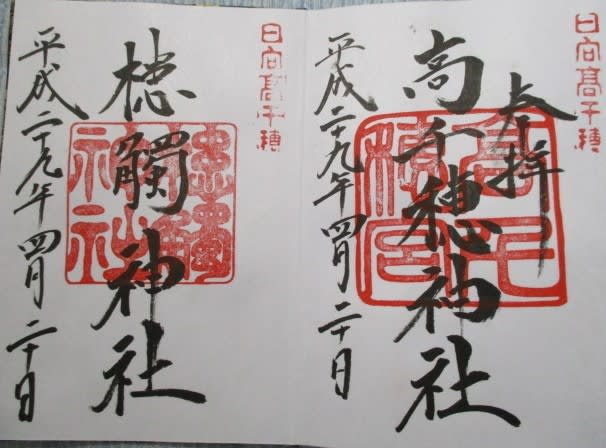 日向髙千穂
奉拝
高千穂神社
平成二十九年四月二十日
日向髙千穂
槵觸神社
平成二十九年四月二十日